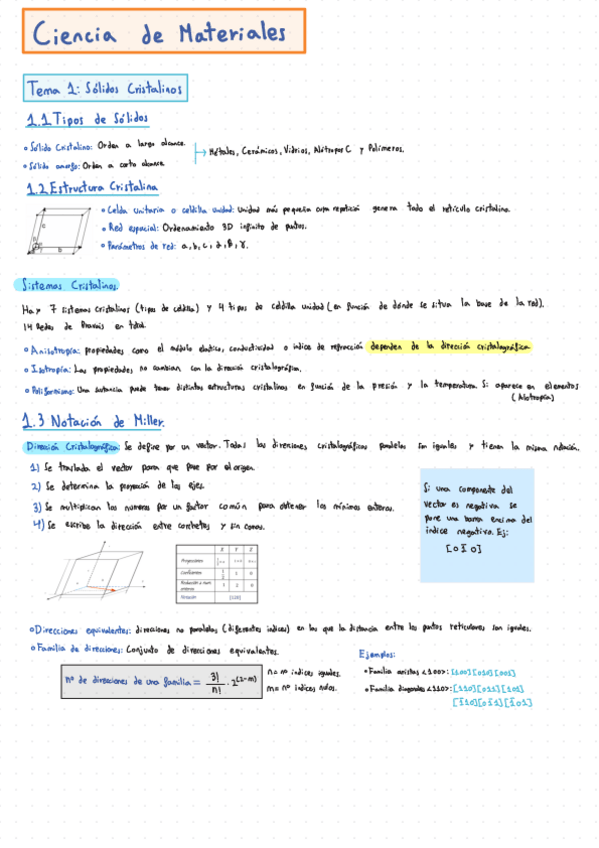 Ciencia de Materiales
Tema 1: Sólidos Cristalinos
1.1 Tipos de Sólidos
• Sólido Cristalino: Orden a largo alcance.
Metales, Cerámicos, Vidrios, Alótropos C y Polímeros.
• Sólido amorfo: Orden a corto alcance
1.2 Estructura Cristalina
• Celda unitaria o celdilla unidad: Unidad más pequeña cuya repetición genera todo el retículo cristalino.
• Red espacial: Ordenamiento 3D infinito de puntos.
• Parámetros de red: a, b, c, α, β, γ.
c
b
Sistemas Cristalinos.
Hay 7 sistemas cristalinos (tipos de celdilla) y 4 tipos de celdilla unidad (en función de dónde se situa la base de la red).
14 Redes de Bravais en total.
• Anisotropía: propiedades como el módulo elastico, conductividad o indice de refracción dependen de la dirección cristalográfica
• Isotropía: Las propiedades no cambian con la dirección cristalográfica.
• Poliformismo: Una sustancia puede tener distintas estructuras cristalinas en función de la presión y la temperatura. Si aparece en elementos
(Alotropía)
1.3 Notación de Miller.
Dirección Cristalográfica: Se define por un vector. Todas las direciones cristalográficas paralelas son iguales y tienen la misma notación.
1) Se traslada el vector para que pase por el origen.
2) Se determina la proyección de los ejes.
3) Se multiplican los numeros por un factor común para obtener los mínimos enteros.
4) Se escribe la dirección entre corchetes y sin comas.
Si una componente del
vector es negativa se
pone una barra encima del
indice negativo. Ej:
[0 1̄ 0]
X Y Z
Proyecciones
Coeficientes 1/2 1 0
Reducción a num. enteros 1 2 0
Notación [120]
• Direcciones equivalentes: direcciones no paralelas (diferentes indices) en las que la distancia entre los puntos reticulares son iguales.
• Familia de direcciones: Conjunto de direcciones equivalentes.
Ejemplos:
nº de direcciones de una familia = 3!/n! · 2^(3-m)
n = nº indices iguales.
m = nº indices nulos.
• Familia aristas <100>: [100] [010] [001]
• Familia diagonales <110>: [110] [011] [101]
[1̄10] [01̄1] [1̄01]